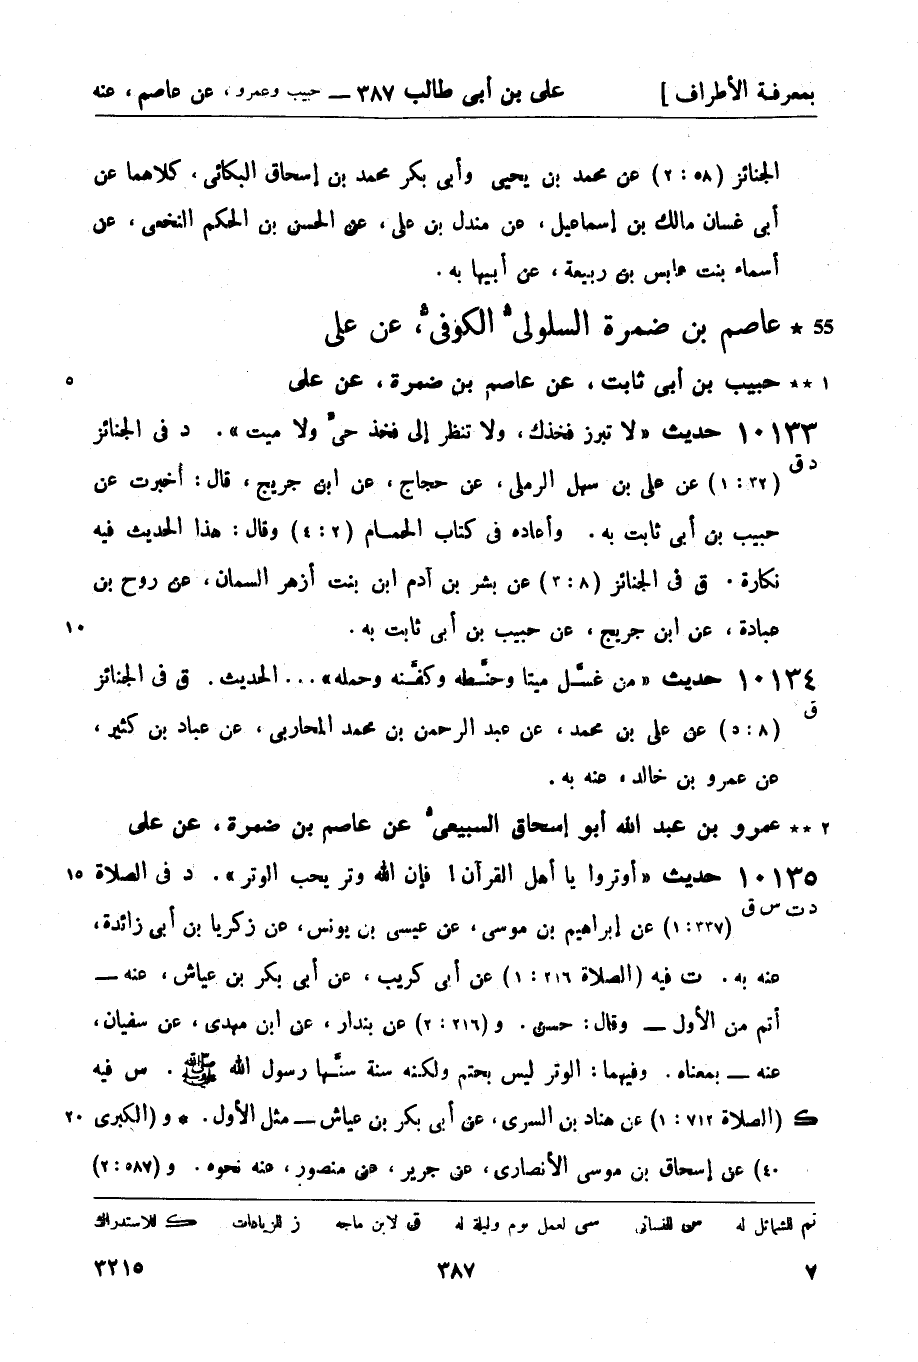 بمعرفة الأطراف ] على بن أبى طالب ٣٨٧ — حبيب وعمرو ، عن عاصم ، عنه
الجنائز (٥٨ : ٢) عن محمد بن يحيى وأبى بكر محمد بن إسحاق البكائى ، كلاهما عن
أبى غسان مالك بن إسماعيل ، عن مندل بن على ، عن الحسن بن الحكم النخعى ، عن
أسماء بنت عابس بن ربيعة ، عن أبيها به .
55 * عاصم بن ضمرة السلولىّ الكوفىّ ، عن على
١ ** حبيب بن أبى ثابت ، عن عاصم بن ضمرة ، عن على ٥
١٠١٣٣ حديث «لا تبرز فخذك ، ولا تنظر إلى فخذ حىّ ولا ميت» . د فى الجنائز
د ق (٣٢ : ١) عن على بن سهل الرملى ، عن حجاج ، عن ابن جريج ، قال : أخبرت عن
حبيب بن أبى ثابت به . وأعاده فى كتاب الحمام (٢ : ٤) وقال : هذا الحديث فيه
نكارة . ق فى الجنائز (٨ : ٢) عن بشر بن آدم ابن بنت أزهر السمان ، عن روح بن
عبادة ، عن ابن جريج ، عن حبيب بن أبى ثابت به . ١٠
١٠١٣٤ حديث «من غسَّل ميتا وحنَّطه وكفَّنه وحمله» ... الحديث . ق فى الجنائز
ق (٨ : ٥) عن على بن محمد ، عن عبد الرحمن بن محمد المحاربى ، عن عباد بن كثير ،
عن عمرو بن خالد ، عنه به .
٢ ** عمرو بن عبد الله أبو إسحاق السبيعىّ عن عاصم بن ضمرة ، عن على
١٠١٣٥ حديث «أوتروا يا أهل القرآن ! فإن الله وتر يحب الوتر» . د فى الصلاة ١٥
د ت س ق (٣٣٧ : ١) عن إبراهيم بن موسى ، عن عيسى بن يونس ، عن زكريا بن أبى زائدة ،
عنه به . ت فيه (الصلاة ٢١٦ : ١) عن أبى كريب ، عن أبى بكر بن عياش ، عنه —
أتم من الأول — وقال : حسن . و (٢١٦ : ٢) عن بندار ، عن ابن مهدى ، عن سفيان ،
عنه — بمعناه . وفيهما : الوتر ليس بحتم ولكنه سنة سنَّها رسول الله ﷺ . س فيه
ك (الصلاة ٧١٢ : ١) عن هناد بن السرى ، عن أبى بكر بن عياش — مثل الأول . * و (الكبرى ٢٠
٤٠) عن إسحاق بن موسى الأنصارى ، عن جرير ، عن منصور ، عنه نحوه . و (٥٨٧ : ٢)
تم للشمائل له س للنسائى سى لعمل يوم وليلة له ق لابن ماجه ز للزيادات ك للاستدراك
٧ ٣٨٧ ٣٢١٥